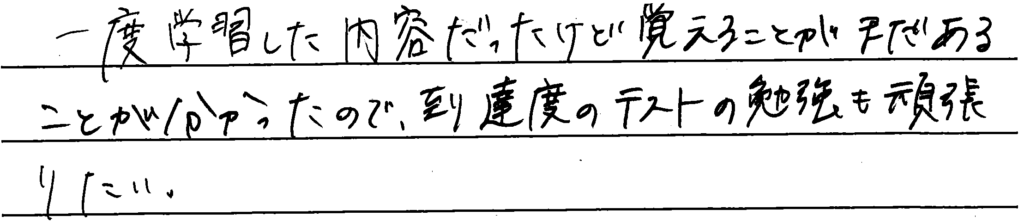 一度学習した内容だったけど覚えることがまだある
ことが分かったので、到達度のテストの勉強も頑張
りたい。